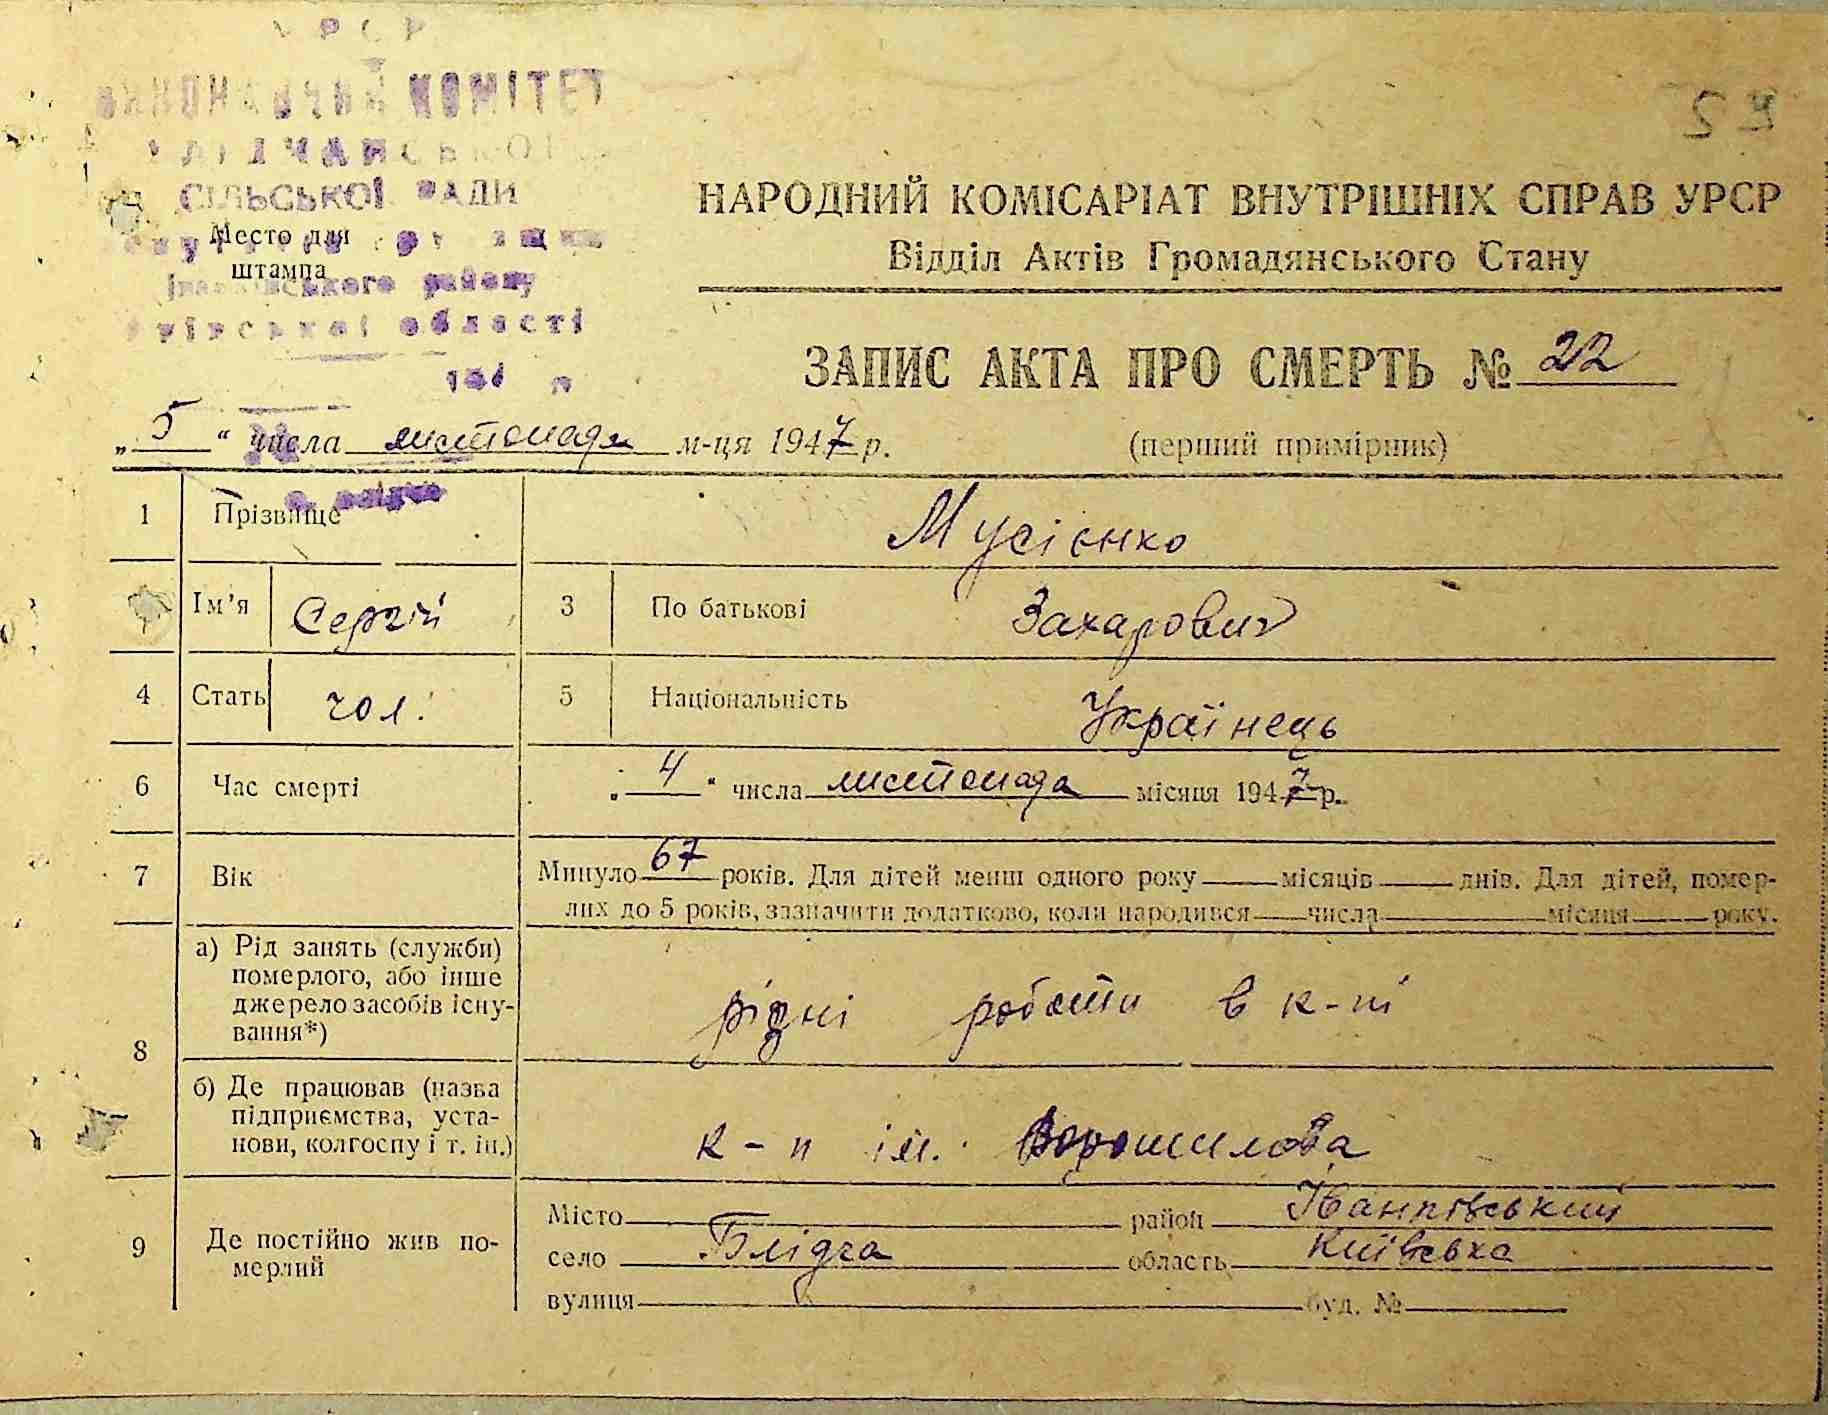 УРСР
ВИКОНАВЧИЙ КОМІТЕТ
СІЛЬСЬКОЇ РАДИ
Место для
штампа
району
області
22
НАРОДНИЙ КОМІСАРІАТ ВНУТРІШНІХ СПРАВ УРСР
Відділ Актів Громадянського Стану
ЗАПИС АКТА ПРО СМЕРТЬ № 22
„5“ числа листопада м-ця 1947 р. (перший примірник)
1 Прізвище Мусієнко
Ім’я Сергій 3 По батькові Захарович
4 Стать чол. 5 Національність Українець
6 Час смерті „4“ числа листопада місяця 1947 р.
7 Вік Минуло 67 років. Для дітей менш одного року місяців днів. Для дітей, помер-
лих до 5 років, зазначити додатково, коли народився числа місяця року.
а) Рід занять (служби)
померлого, або інше
джерело засобів існу-
вання*) рідні роботи в к-пі
8
б) Де працював (назва
підприємства, уста-
нови, колгоспу і т. ін.) к-п ім. Ворошилова
9 Де постійно жив по-
мерлий
Місто район Іванківський
село Блідча область Київська
вулиця буд. №